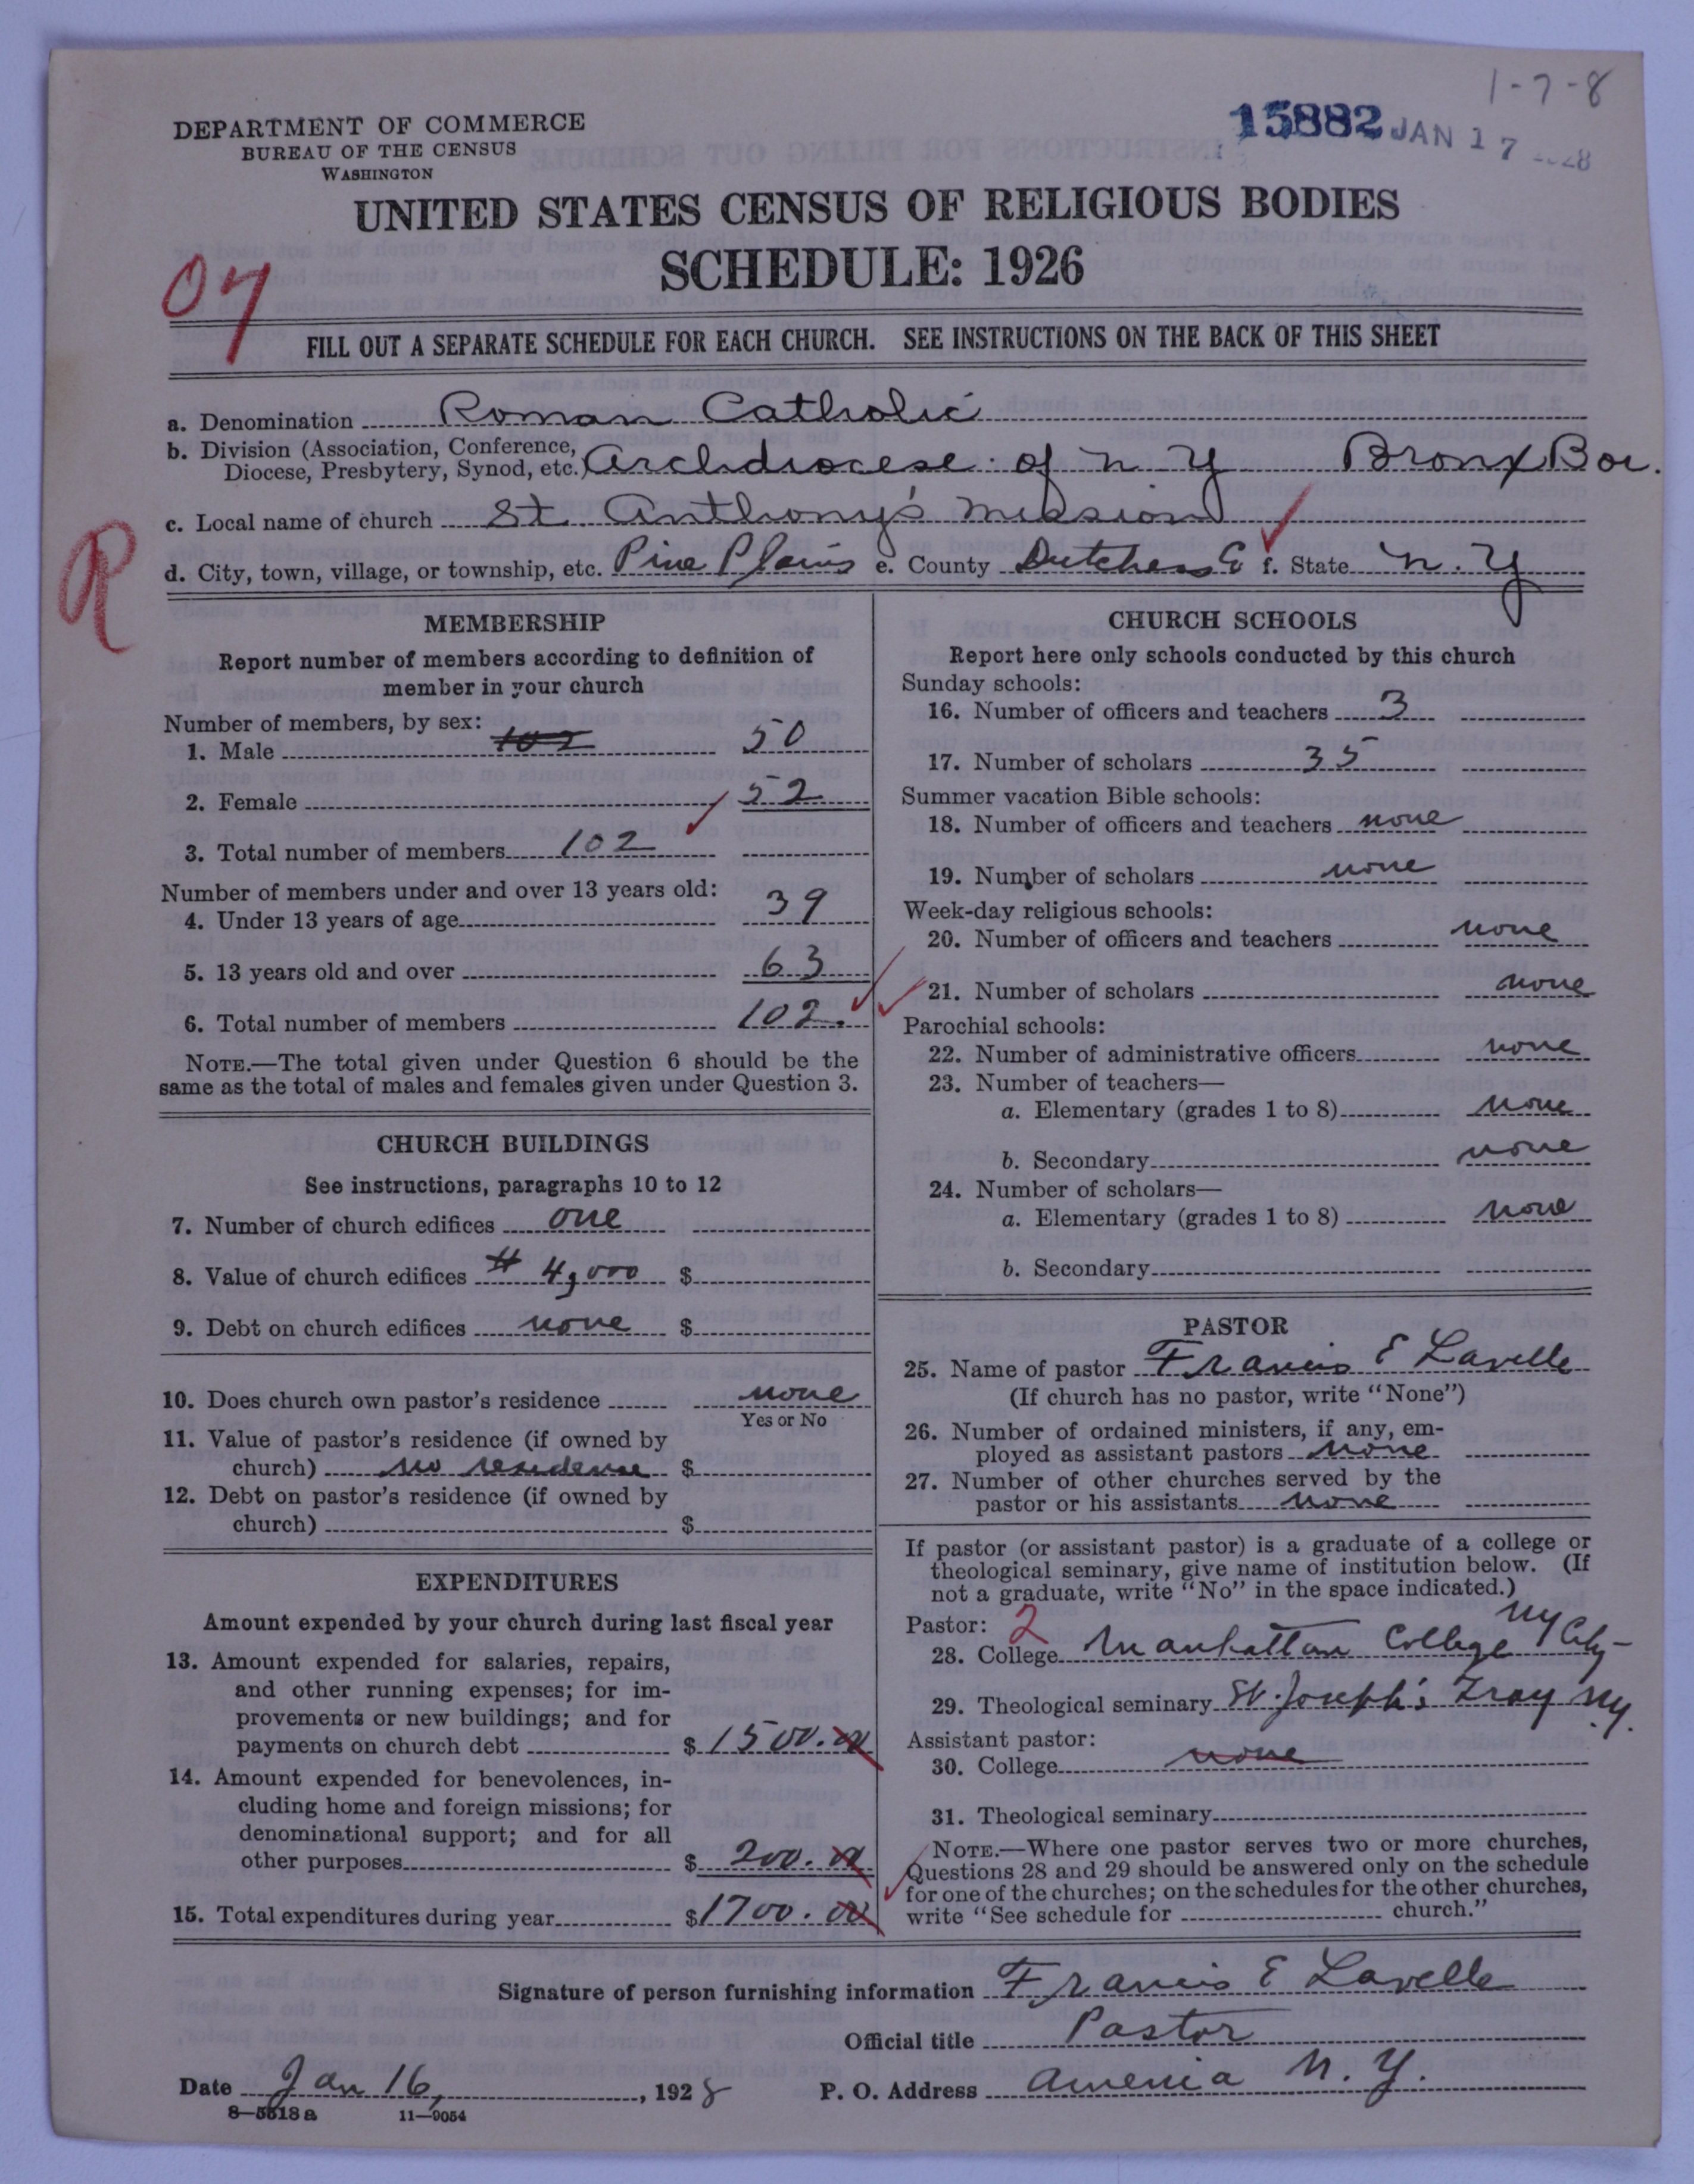 1-7-8
15882 JAN 17 1928
DEPARTMENT OF COMMERCE
BUREAU OF THE CENSUS
WASHINGTON
UNITED STATES CENSUS OF RELIGIOUS BODIES
SCHEDULE: 1926
04
FILL OUT A SEPARATE SCHEDULE FOR EACH CHURCH. SEE INSTRUCTIONS ON THE BACK OF THIS SHEET
a. Denomination Roman Catholic
b. Division (Association, Conference,
Diocese, Presbytery, Synod, etc.) Archdiocese of N Y Bronx Bor.
c. Local name of church St Anthony's Mission
R
d. City, town, village, or township, etc. Pine Plains e. County Dutchess Co f. State N. Y
MEMBERSHIP
Report number of members according to definition of
member in your church
Number of members, by sex:
1. Male 102 50
2. Female 52
3. Total number of members 102
Number of members under and over 13 years old:
4. Under 13 years of age 39
5. 13 years old and over 63
6. Total number of members 102.
NOTE.—The total given under Question 6 should be the
same as the total of males and females given under Question 3.
CHURCH BUILDINGS
See instructions, paragraphs 10 to 12
7. Number of church edifices one
8. Value of church edifices $ 4,000 $
9. Debt on church edifices none $
10. Does church own pastor's residence none
Yes or No
11. Value of pastor's residence (if owned by
church) no residence $
12. Debt on pastor's residence (if owned by
church) $
EXPENDITURES
Amount expended by your church during last fiscal year
13. Amount expended for salaries, repairs,
and other running expenses; for im-
provements or new buildings; and for
payments on church debt $ 1500.00
14. Amount expended for benevolences, in-
cluding home and foreign missions; for
denominational support; and for all
other purposes $ 200.00
15. Total expenditures during year $ 1700.00
CHURCH SCHOOLS
Report here only schools conducted by this church
Sunday schools:
16. Number of officers and teachers 3
17. Number of scholars 35
Summer vacation Bible schools:
18. Number of officers and teachers none
19. Number of scholars none
Week-day religious schools:
20. Number of officers and teachers none
21. Number of scholars none
Parochial schools:
22. Number of administrative officers none
23. Number of teachers—
a. Elementary (grades 1 to 8) none
b. Secondary none
24. Number of scholars—
a. Elementary (grades 1 to 8) none
b. Secondary
PASTOR
25. Name of pastor Francis E Lavelle
(If church has no pastor, write "None")
26. Number of ordained ministers, if any, em-
ployed as assistant pastors none
27. Number of other churches served by the
pastor or his assistants none
If pastor (or assistant pastor) is a graduate of a college or
theological seminary, give name of institution below. (If
not a graduate, write "No" in the space indicated.)
Pastor: 2
28. College Manhattan College NY City
29. Theological seminary St. Joseph's Troy N.Y.
Assistant pastor:
30. College none
31. Theological seminary
NOTE.—Where one pastor serves two or more churches,
Questions 28 and 29 should be answered only on the schedule
for one of the churches; on the schedules for the other churches,
write "See schedule for church."
Signature of person furnishing information Francis E Lavelle
Official title Pastor
Date Jan 16, , 1928 P. O. Address Amenia N. Y.
8—5518 a 11—9054